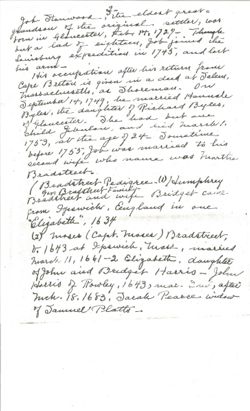 I-
Job Stanwood - the eldest great
grandson of the original settler, was
born in Gloucester, Feb. 14, 1727 - Though
but a lad of eighteen, Job joined the
Louisburg expedition in 1745, and lost
his arm -
His occupation after his return from
Cape Breton is given in a deed at Salem,
Massachusetts, as Shoreman. On
September 14, 1749, he married Hannah
Byles, the daughter of Richard Byles,
of Gloucester. She had but one
child and died March 1,
1753, at the age of 24. Sometime
before 1755, Job was married to his
second wife who name was Martha
Bradstreet.
(Bradstreet Pedigree. (1) Humphrey
Bradstreet and wife Bridget came
from Ipswich, England in one
"Elizabeth", 1634
(2) Moses (Capt. Moses) Bradstreet,
b 1643 at Ipswich, Mass., married
March 11, 1661-2 Elizabeth, daughter
of John and Bridget Harris - John
Harris of Rowley, 1643; mar. 2nd, after
Mch. 18, 1683, Sarah Pearce widow
of Samuel Platts -